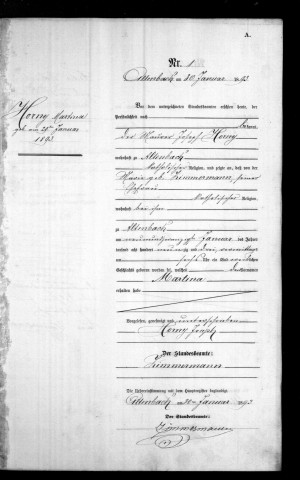 A.
Nr. 1
Altenbach am 30 Januar 1893
Horny Martina
geb. am 29ten Januar
1893
Vor dem unterzeichneten Standesbeamten erschien heute, der
Persönlichkeit nach
bekannt,
der Maurer Joseph Horny
wohnhaft zu Altenbach
katholischer Religion, und zeigte an, daß von der
Maria geb. Zimmermann, seiner
Ehefrau
katholischer Religion,
wohnhaft bei ihm
zu Altenbach
am neunundzwanzigsten Januar des Jahres
tausend acht hundert neunzig und drei
um sechs Uhr ein Kind weiblichen
Geschlechts geboren worden sei, welches den Vornamen
Martina
erhalten habe
Vorgelesen, genehmigt und unterschrieben
Horny Joseph
Der Standesbeamte:
Zimmermann
Die Uebereinstimmung mit dem Hauptregister beglaubigt
Altenbach am 30 Januar 1893
Der Standesbeamte:
Zimmermann